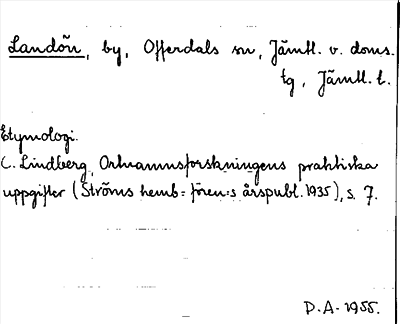 Landön, by, Offerdals sn, Jämtl. v. doms.
tg, Jämtl. l.
Etymologi.
C. Lindberg, Ortnamnsforskningens praktiska
uppgifter (Ströms hemb= fören:s årspubl. 1935), s. 7.
D.A. 1955.